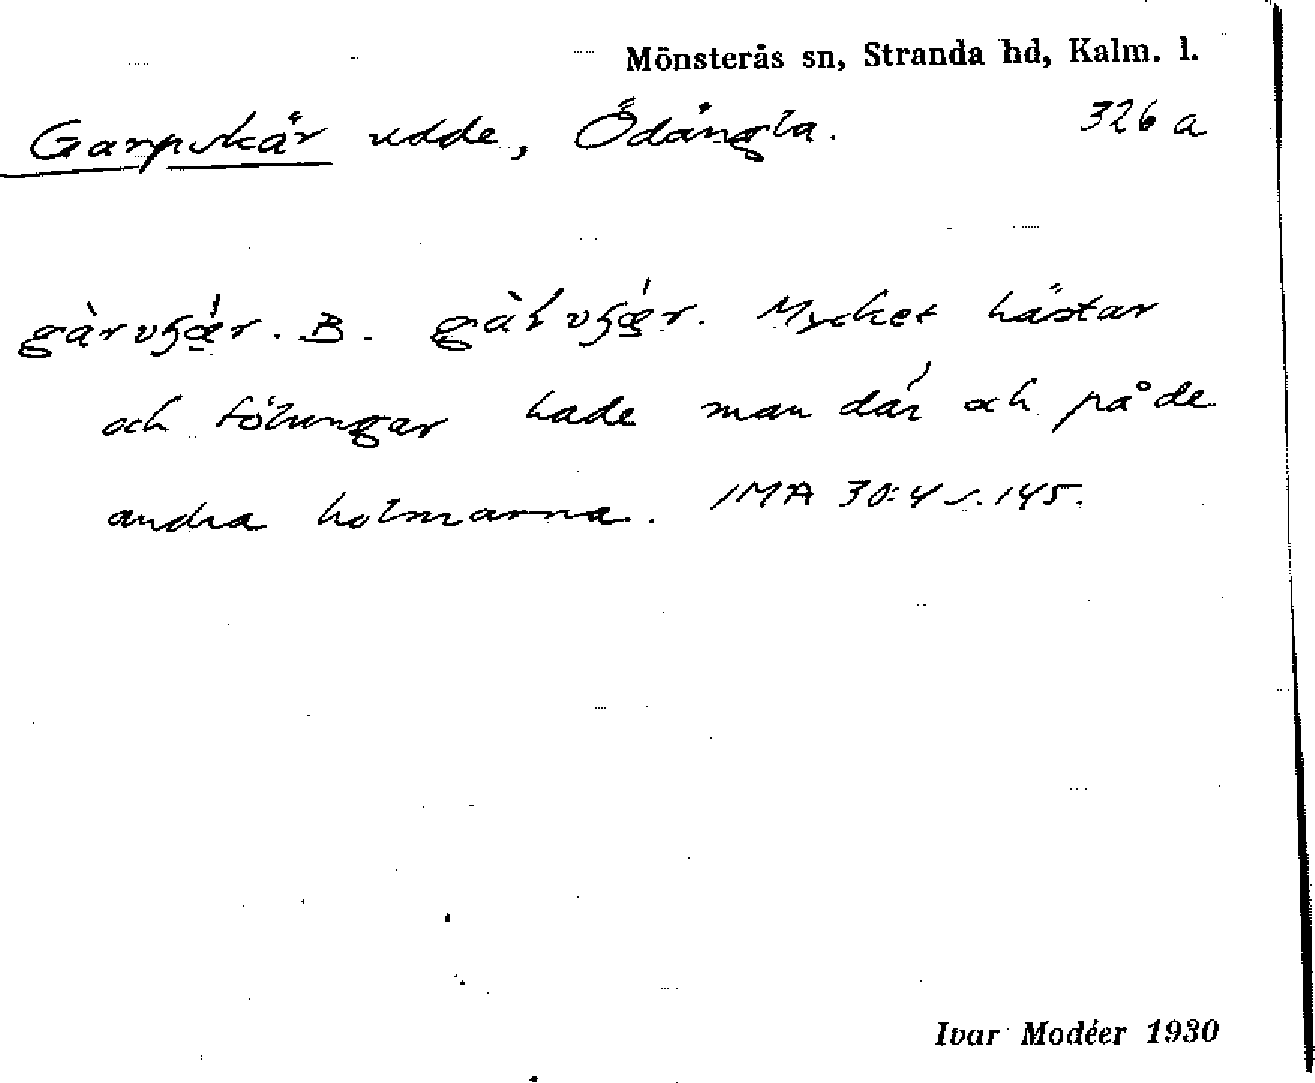 Mönsterås sn, Stranda hd, Kalm. l.
Garpskär udde, Ödängla. 326 a
B. Mycket hästar
och fölungar hade man där och på de
andra holmarna. IMA 30:4 s. 145.
Ivar Modéer 1930